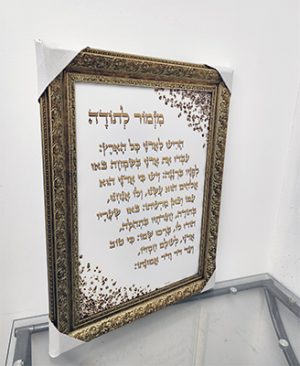 מזמור לתודה
הריעו כל הארץ:
עבדו את בשמחה באו
לפניו ברננה: דעו כי הוא
אלהים הוא עשנו, ולו אנחנו,
עמו וצאן מרעיתו: באו שעריו
בתודה, חצרתיו בתהלה,
הודו לו, ברכו שמו: כי טוב
לעולם חסדו,
ועד דר ודר אמונתו: